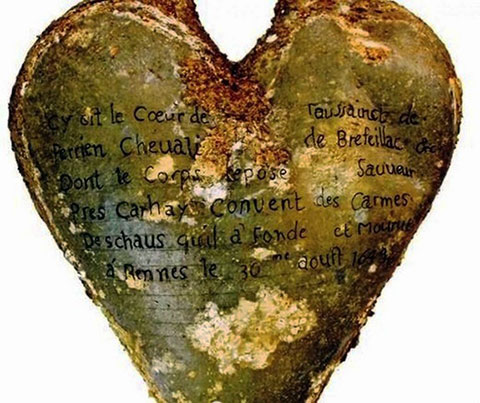 Cy git le Cœur de Toussaincts de
Perrien Chevali de Brefeillac
Dont le Corps repose Sauveur
Pres Carhay Convent des Carmes
Deschaus quil à Fonde et Mourut
à Rennes le 30me aoust 1649